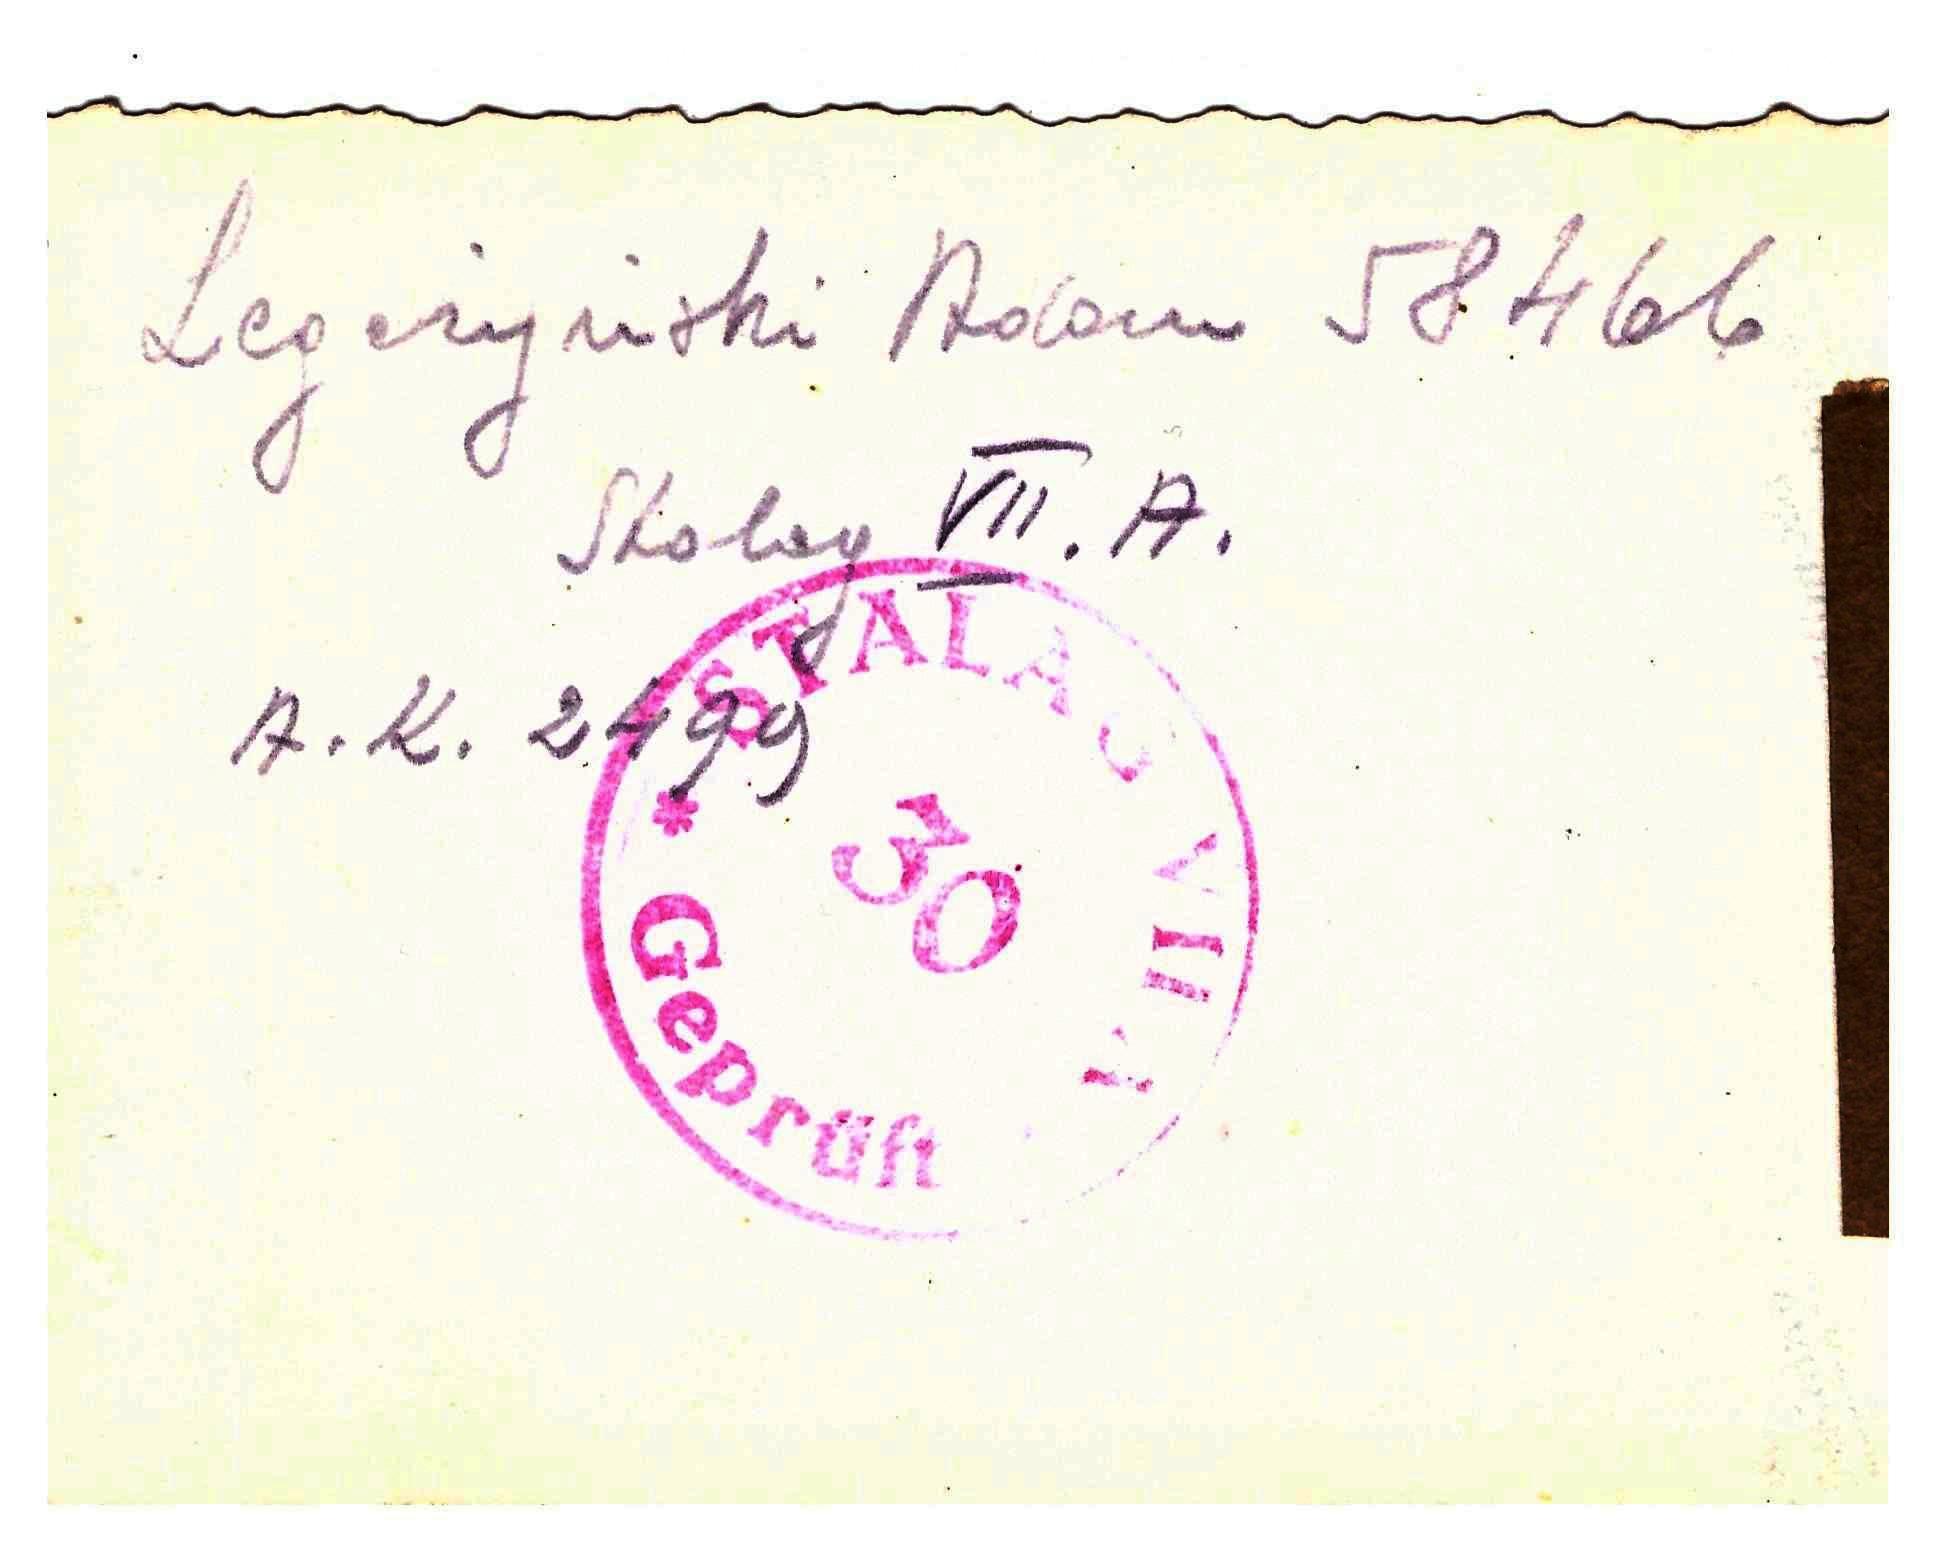 Legeżyński Adam 58466
Stalag VII. A.
A. K. 2499
STALAG VII A
30
* Geprüft